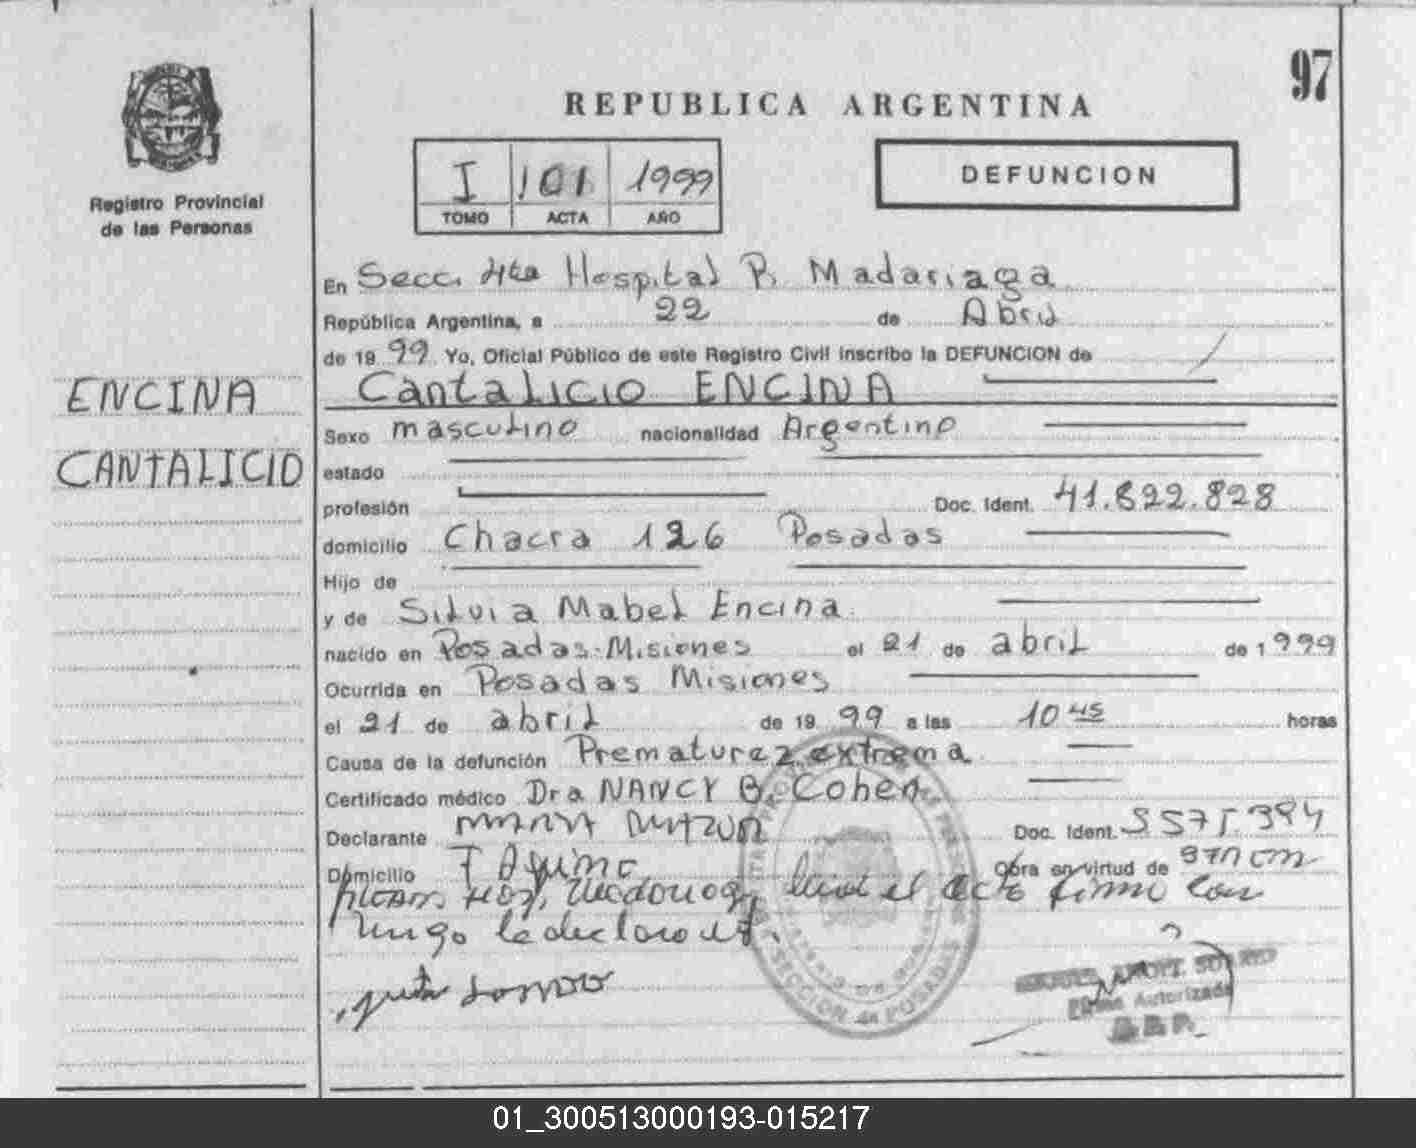 97
REPUBLICA ARGENTINA
Registro Provincial
de las Personas
I 101 1999
TOMO ACTA AÑO
DEFUNCION
ENCINA
CANTALICIO
En Secc. 4ta Hospital R. Madariaga
República Argentina, a 22 de Abril
de 19 99 Yo, Oficial Público de este Registro Civil inscribo la DEFUNCION de
Cantalicio ENCINA
Sexo masculino nacionalidad Argentino
estado
profesión Doc. Ident. 41.822.828
domicilio Chacra 126 Posadas
Hijo de
y de Silvia Mabel Encina
nacido en Posadas-Misiones el 21 de abril de 1999
Ocurrida en Posadas Misiones
el 21 de abril de 19 99 a las 10 45 horas
Causa de la defunción Prematurez extrema
Certificado médico Dra NANCY B. Cohen
Declarante Doc. Ident.
Domicilio Obra en virtud de
Hosp. Madariaga, el acta firma con
migo la declarante.
SECCION 4a POSADAS
Firma Autorizada
01_300513000193-015217